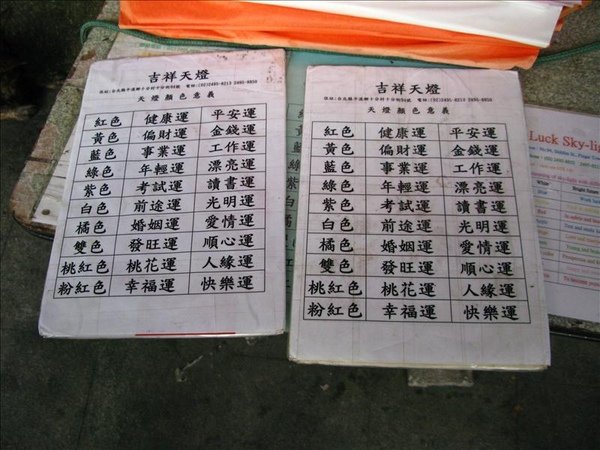 吉祥天燈
天燈顏色意義
紅色 健康運 平安運
黃色 偏財運 金錢運
藍色 事業運 工作運
綠色 年輕運 漂亮運
紫色 考試運 讀書運
白色 前途運 光明運
橘色 婚姻運 愛情運
雙色 發旺運 順心運
桃紅色 桃花運 人緣運
粉紅色 幸福運 快樂運
吉祥天燈
天燈顏色意義
紅色 健康運 平安運
黃色 偏財運 金錢運
藍色 事業運 工作運
綠色 年輕運 漂亮運
紫色 考試運 讀書運
白色 前途運 光明運
橘色 婚姻運 愛情運
雙色 發旺運 順心運
桃紅色 桃花運 人緣運
粉紅色 幸福運 快樂運
Luck Sky-lig